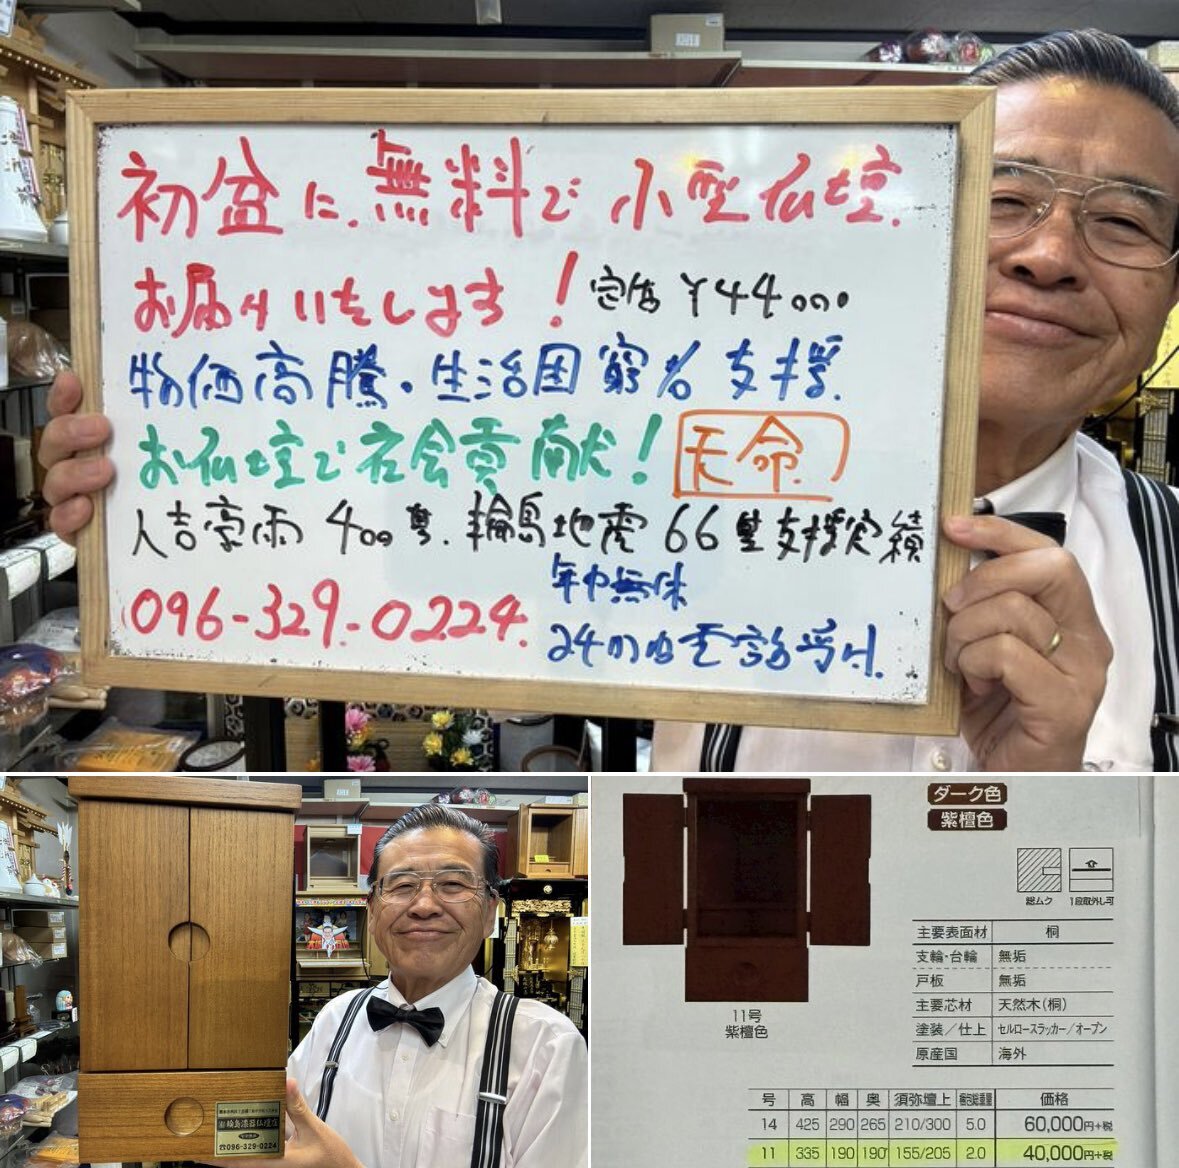 初盆に.無料で小型仏壇.
お届けいたします！定価¥44000
物価高騰.生活困窮者支援.
お仏壇で社会貢献！天命
人吉豪雨400基.輪島地震66基支援実績
年中無休
096-329-0224.
24時間電話受付.
輪島漆器仏壇店
☎096-329-0224
ダーク色
紫檀色
総ムク 1段取外し可
主要表面材 桐
支輪・台輪 無垢
戸板 無垢
主要芯材 天然木(桐)
塗装／仕上 セルロースラッカー／オープン
原産国 海外
11号
紫檀色
号 高 幅 奥 須弥壇上 梱包総重量 価格
14 425 290 265 210/300 5.0 60,000円+税
11 335 190 190 155/205 2.0 40,000円+税